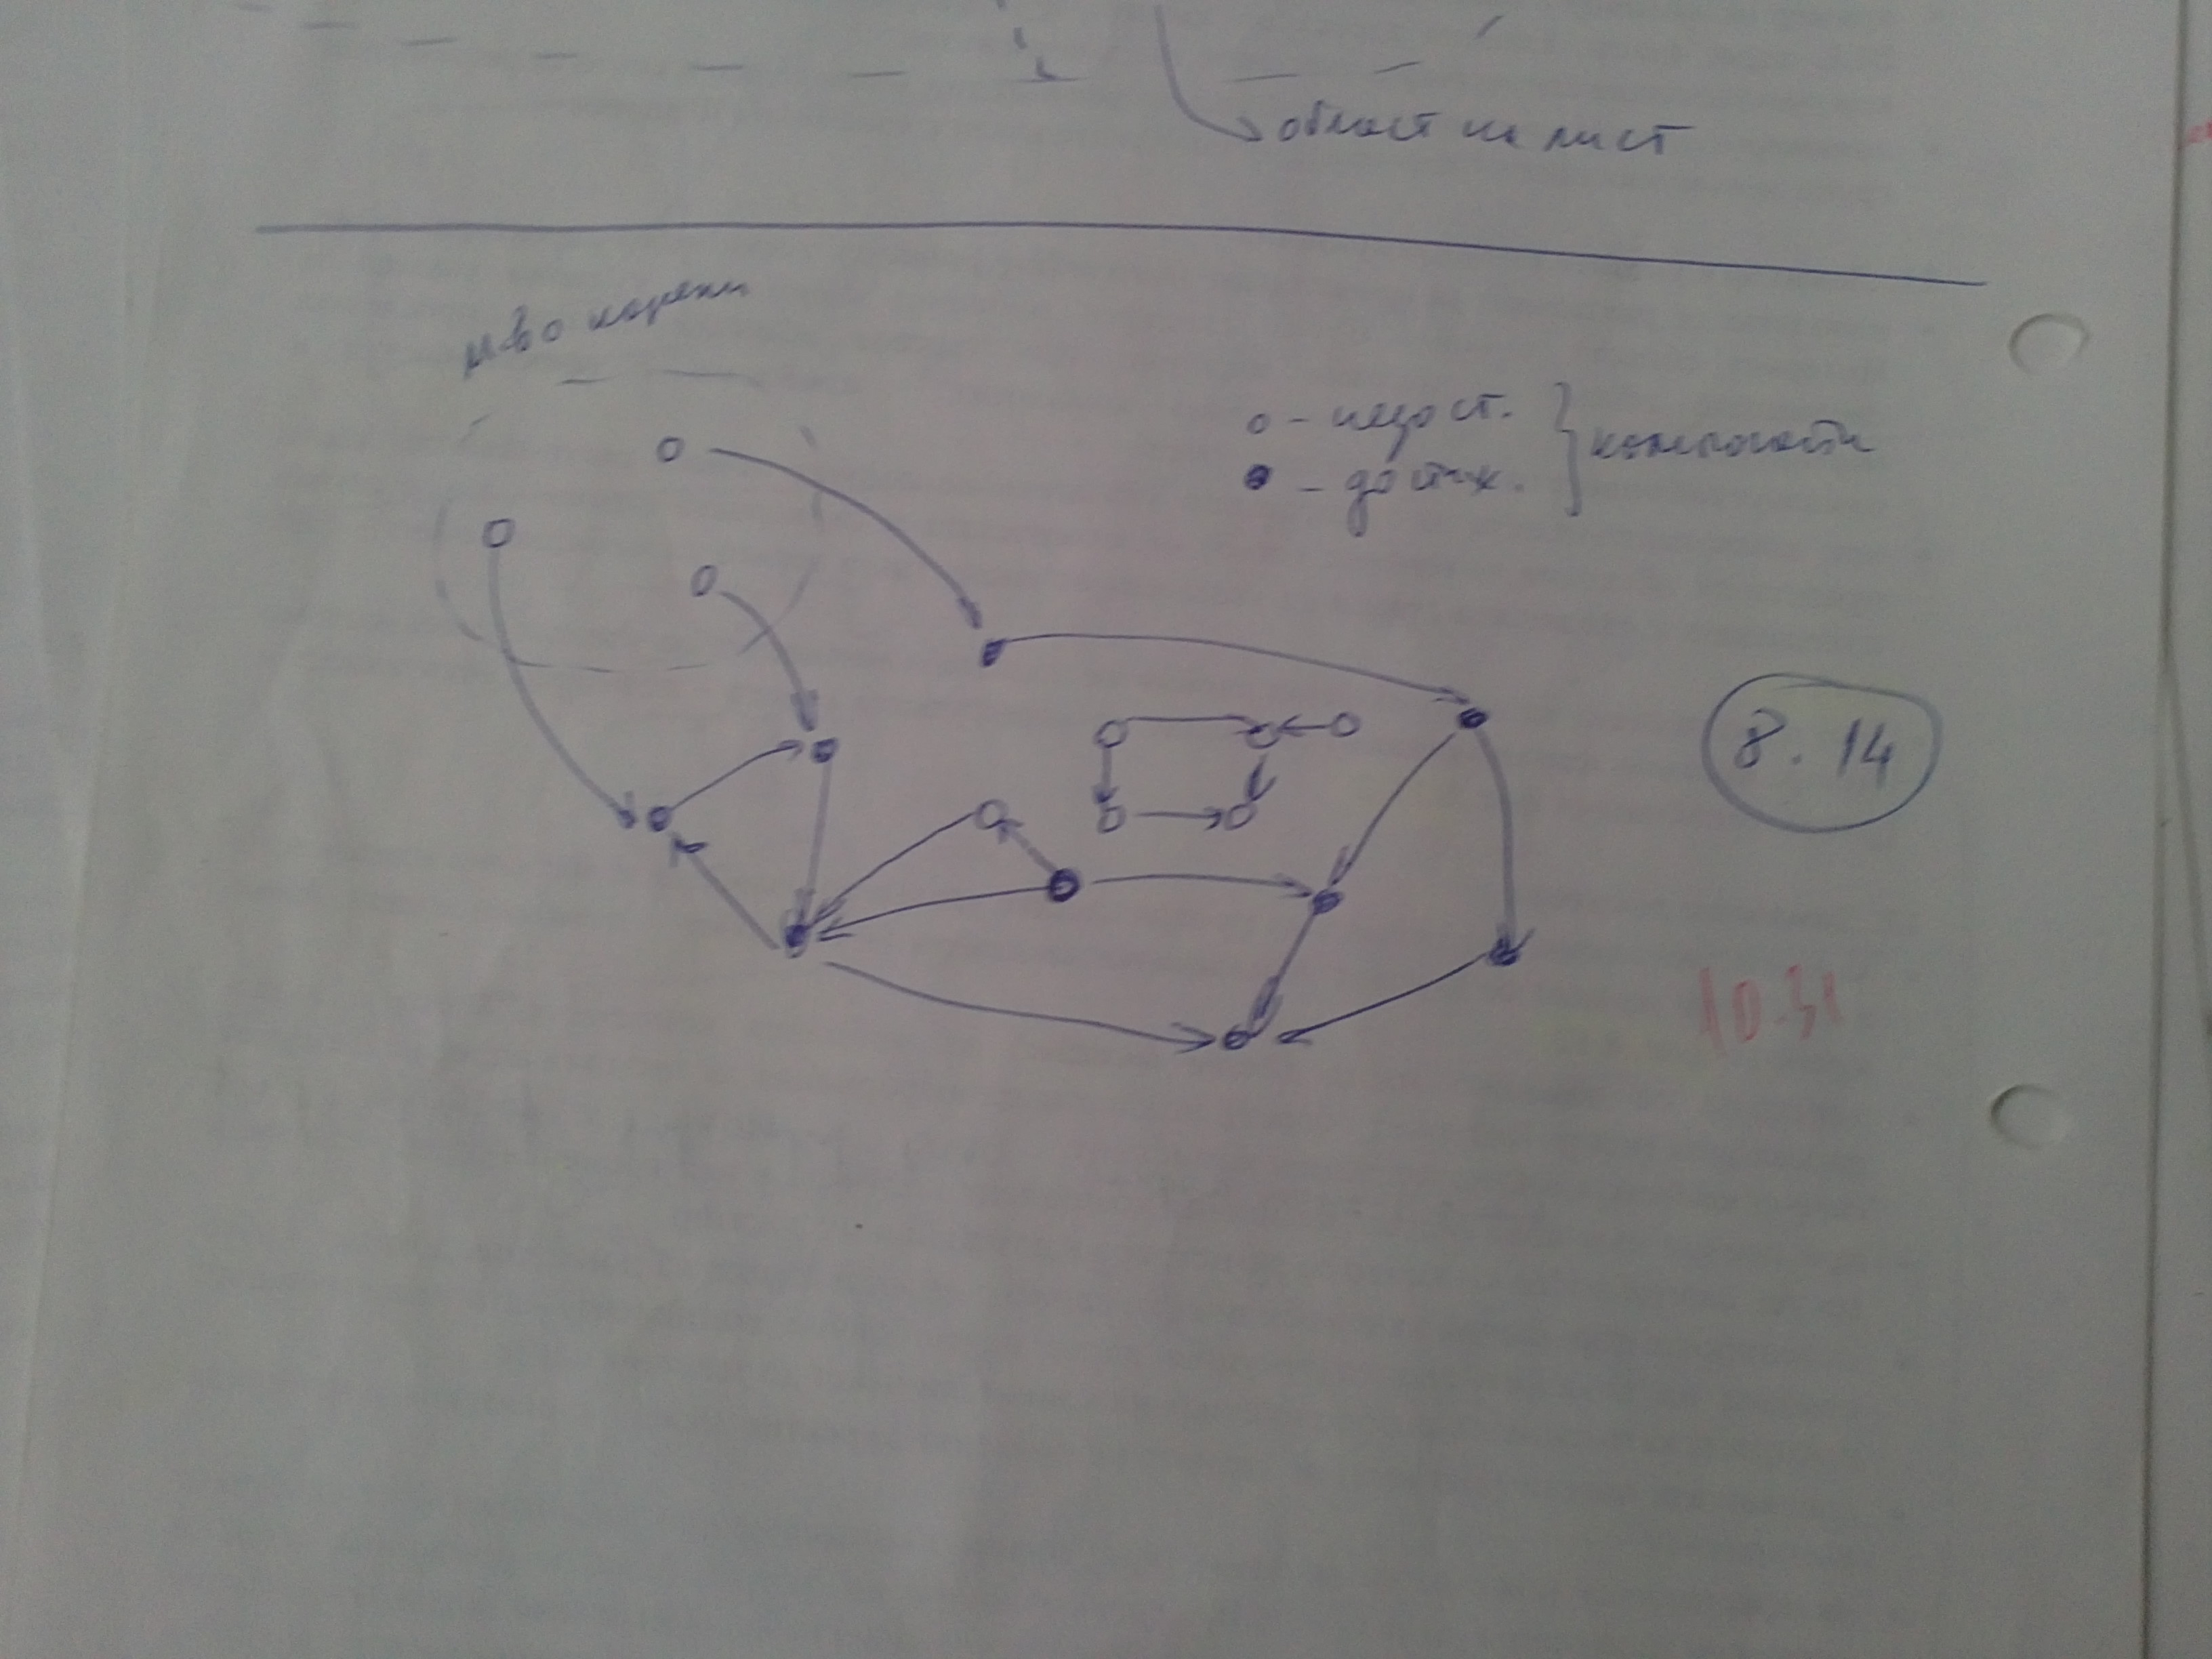 област на лист
мн-во корени
о - недост.
● - достиж.
8.14
10.31